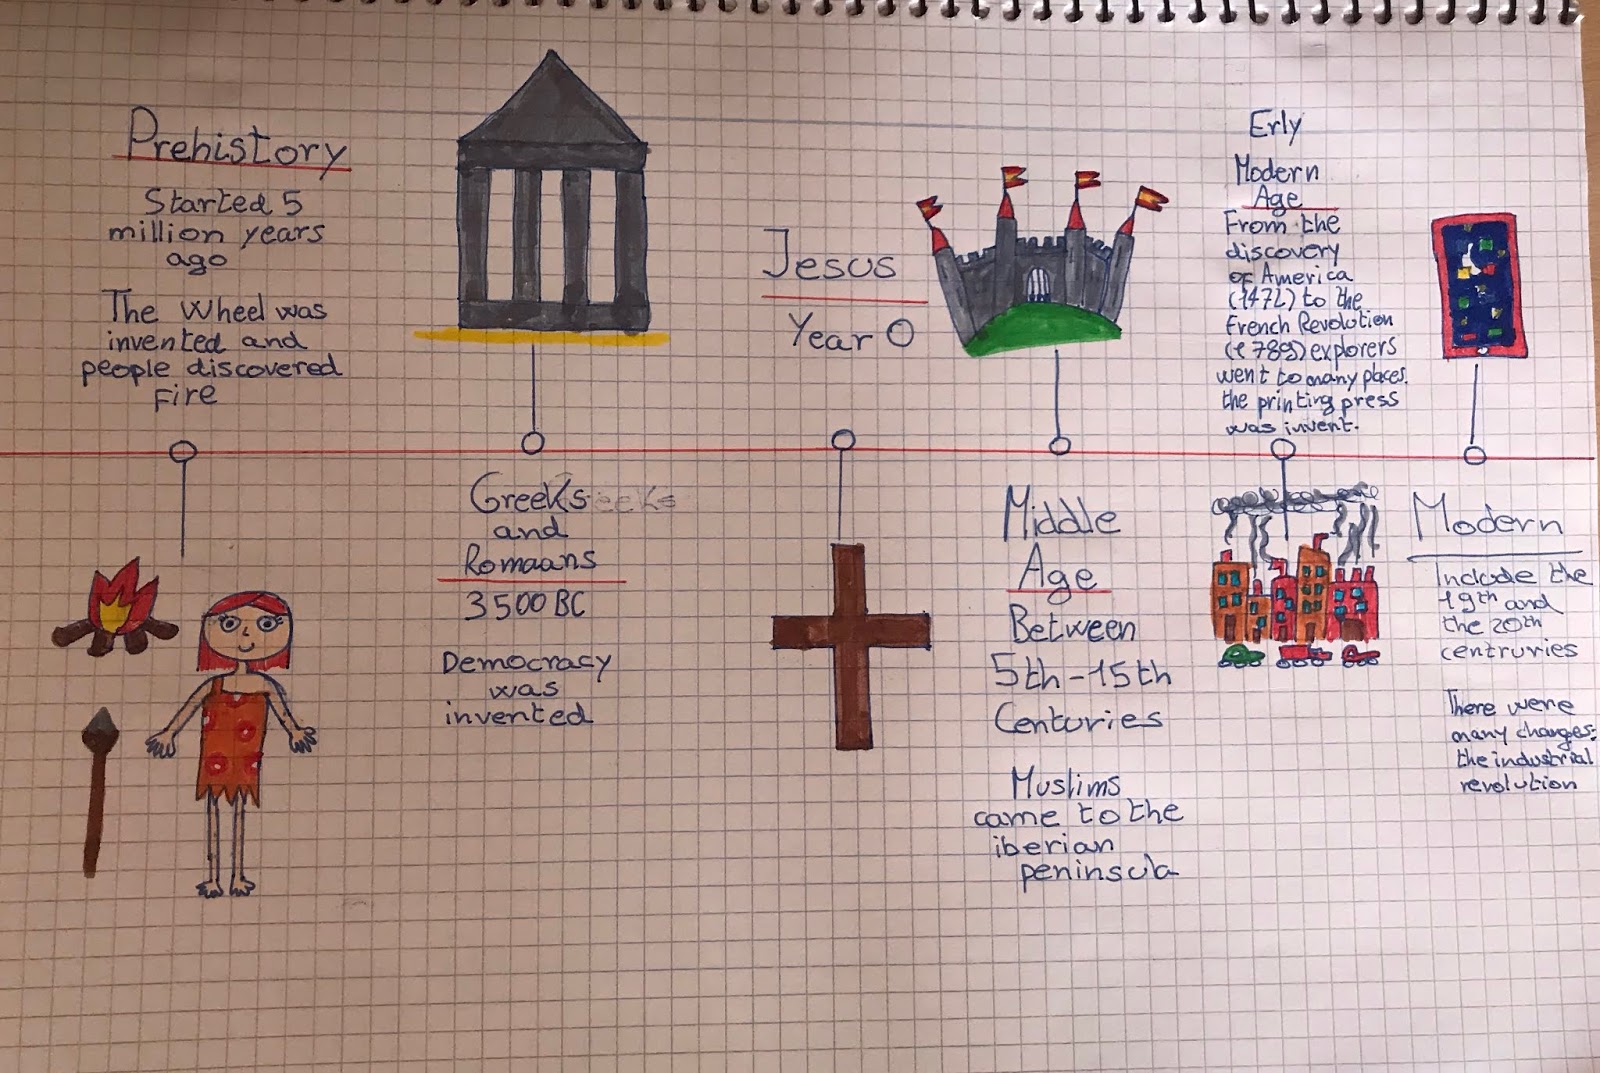 Prehistory
Started 5
million years
ago
The wheel was
invented and
people discovered
Fire
Greeks
and
Romaans
3500 BC
Democracy
was
invented
Jesus
Year 0
Middle
Age
Between
5th-15th
Centuries
Muslims
came to the
iberian
peninsula
Erly
Modern
Age
From the
discovery
of America
(1472) to the
French Revolution
(1789) explorers
went to many places.
the printing press
was invent.
Modern
Include the
19th and
the 20th
centruries
There were
many changes:
the industrial
revolution